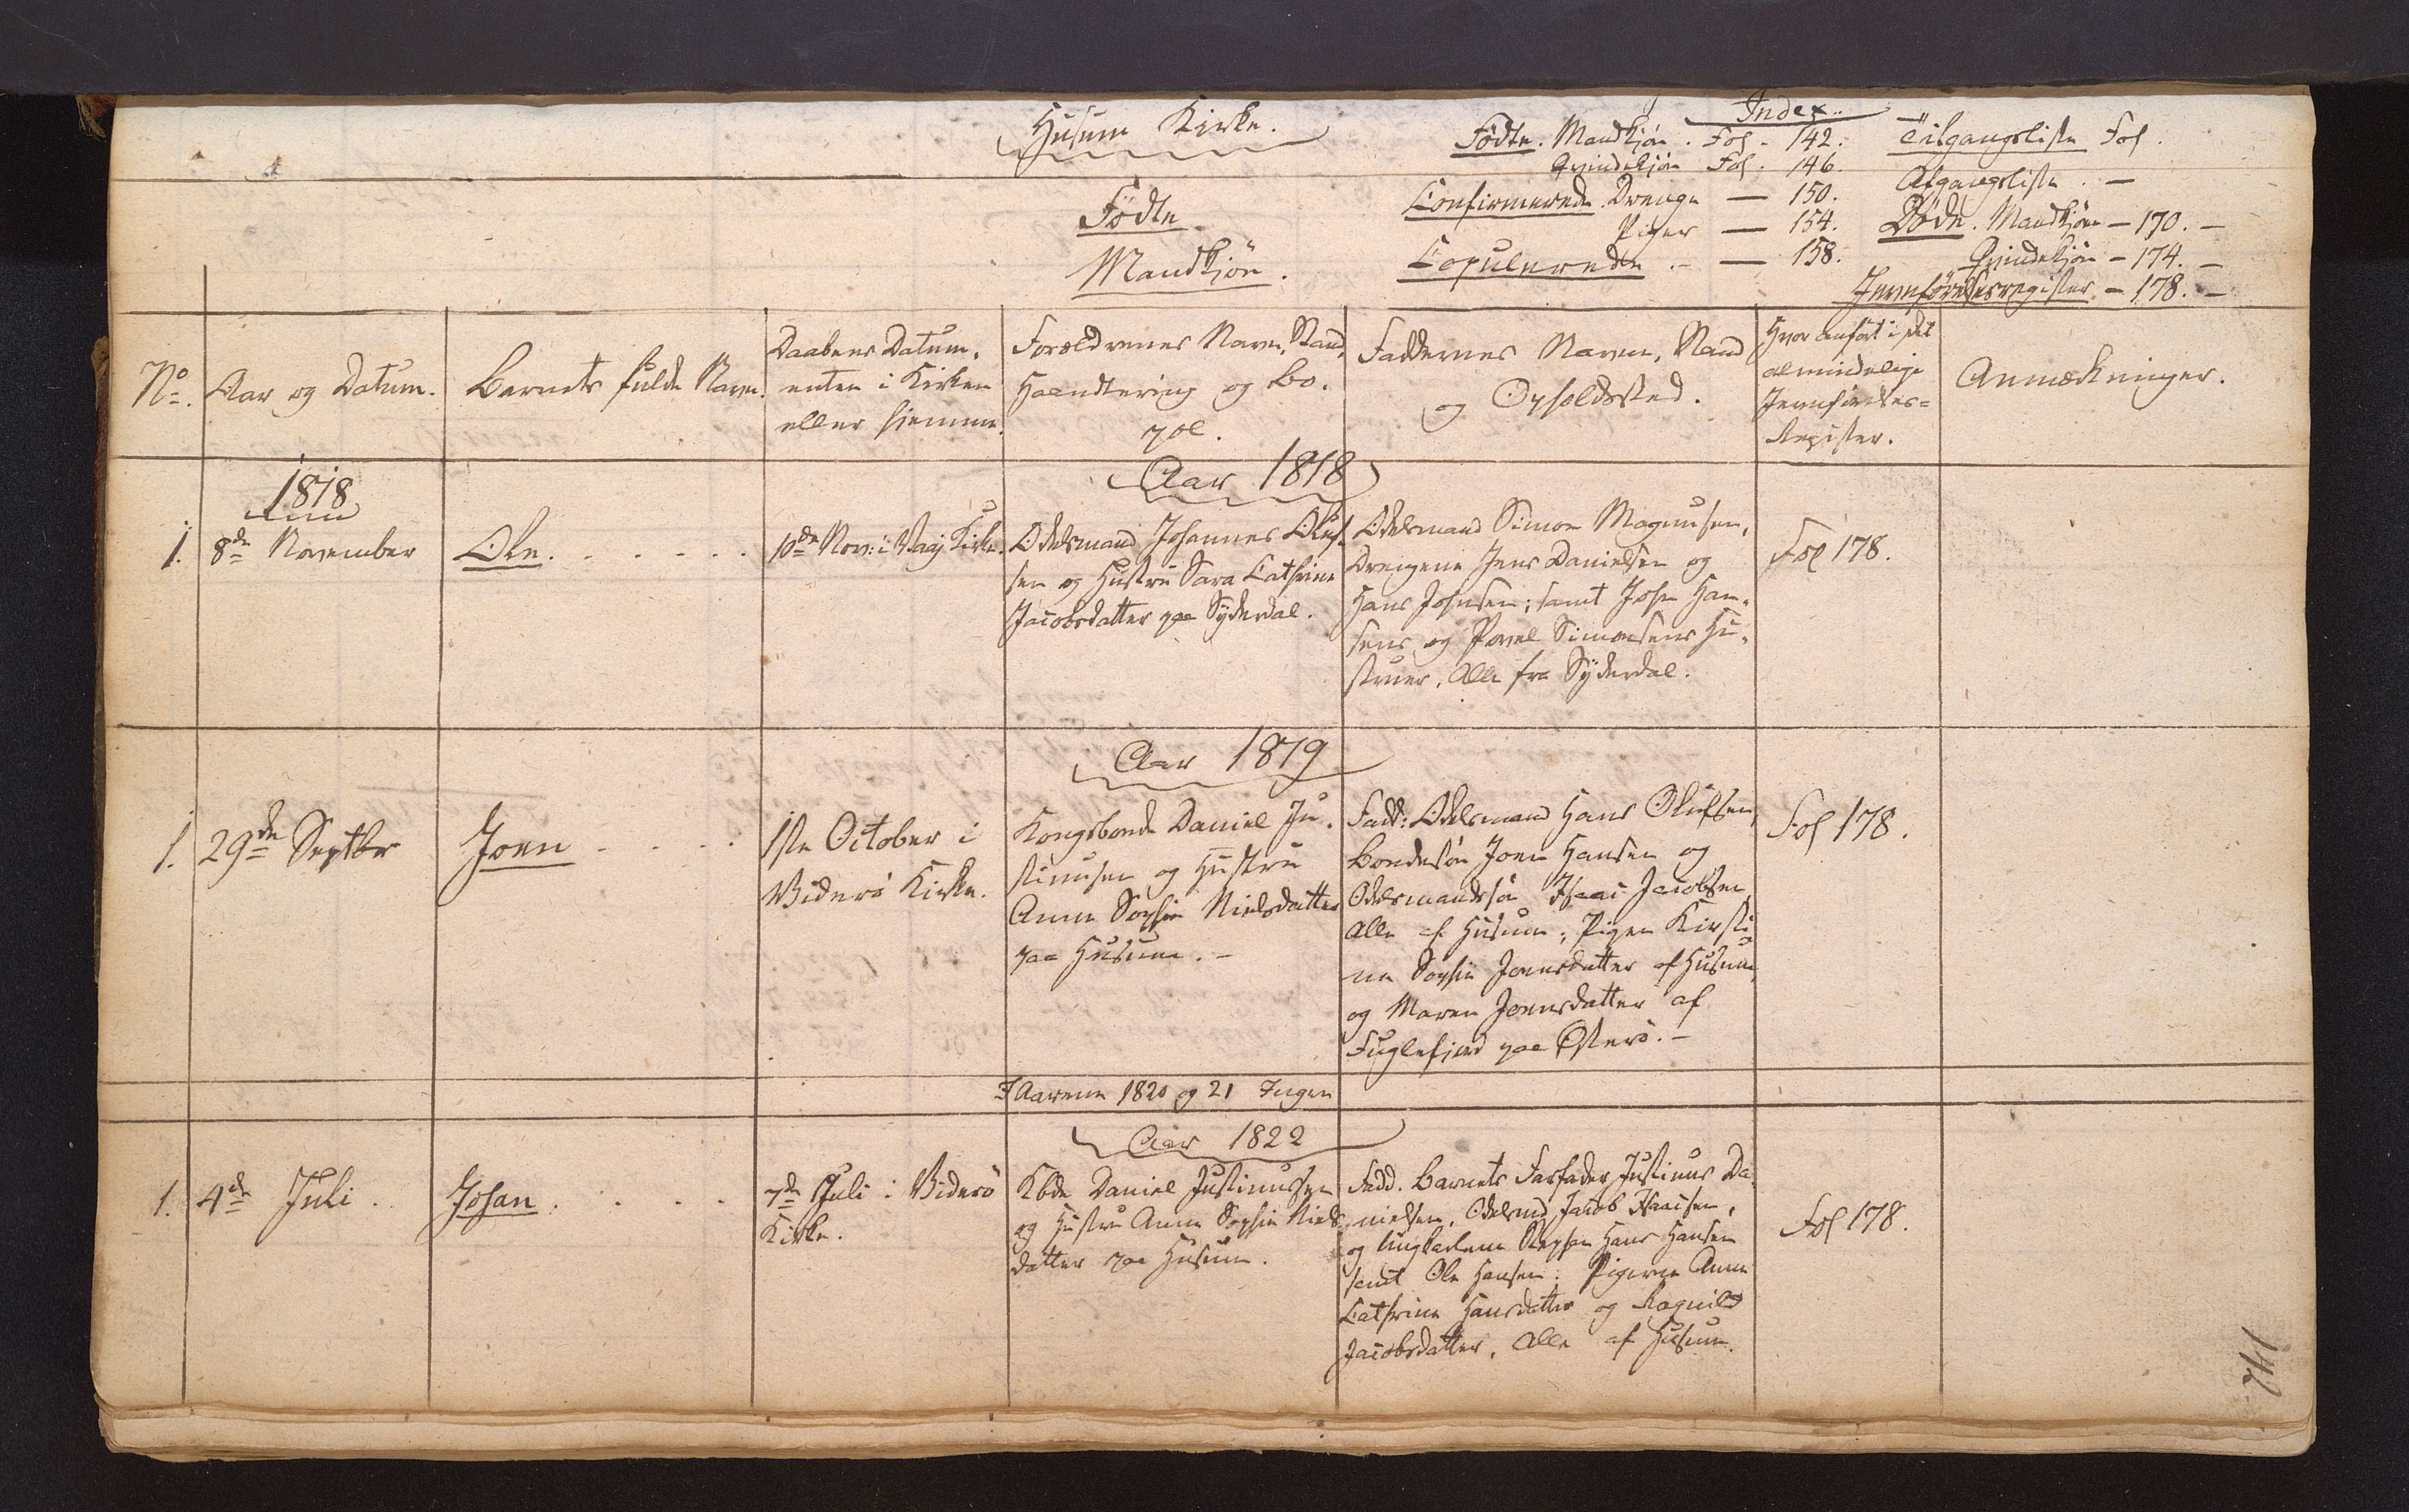 Husum Kirke.
Index..
Födte. Mandkjön. Fol. 142.
Qvindekjön Fol. 146.
Confirmerede. Drenge — 150.
Piger — 154.
Copulerede. — 158.
Tilgangsliste Fol.
Afgangsliste. —
Döde. Mandkjön — 170. —
Qvindekjön — 174. —
Jevnförelsesregister — 178. —
Födte
Mandkjön.
No.
Aar og Datum.
Barnets fulde Navn.
Daabens Datum,
enten i Kirken
eller hjemme.
Forældrenes Navn, Stand,
Haandtering og Bo-
pæl.
Faddernes Navn, Stand
og Opholdssted.
Hvor anfört i det
almindelige
Jevnförelses=
Register.
Anmærkninger.
Aar 1818
1818
1.
8de November
Ole.
10de Nov: i Vaaj Kirke.
Odelsmand Johannes Oluf-
sen og Hustru Sara Cathrine
Jacobsdatter paa Syderdal.
Odelsmand Simon Magnusen,
Drengene Jens Danielsen og
Hans Johnsen; samt John Han-
sens og Povel Simonsens Hu-
struer, Alle fra Syderdal.
Fol 178.
Aar 1819
1.
29de Septbr
Joen
1ste October i
Viderö Kirke.
Kongsbonde Daniel Ju-
stinusen og Hustru
Anne Sophie Nielsdatter
paa Husum. —
Fadd: Odelsmand Hans Olufsen,
Bondesön Joen Hansen og
Odelsmandssön Isaac Jacobsen,
Alle af Husum; Pigen Kirsti-
ne Sophie Joensdatter af Husum,
og Maren Joensdatter af
Fuglefjord paa Österö. —
Fol 178.
I Aarene 1820 og 21 Ingen
Aar 1822
1.
4de Juli.
Johan.
7de Juli i Viderö
Kirke.
Kbde Daniel Justinussen
og Hustru Anne Sophie Niels-
datter paa Husum.
Fadd. Barnets Farfader Justinus Da-
nielsen, Odelsmd Jacob Isaacsen,
og Ungkarlene Stephen Hans Hansen
samt Ole Hansen; Pigerne Anne
Cathrine Hansdatter og Ragnild
Jacobsdatter, Alle af Husum.
Fol 178.
142